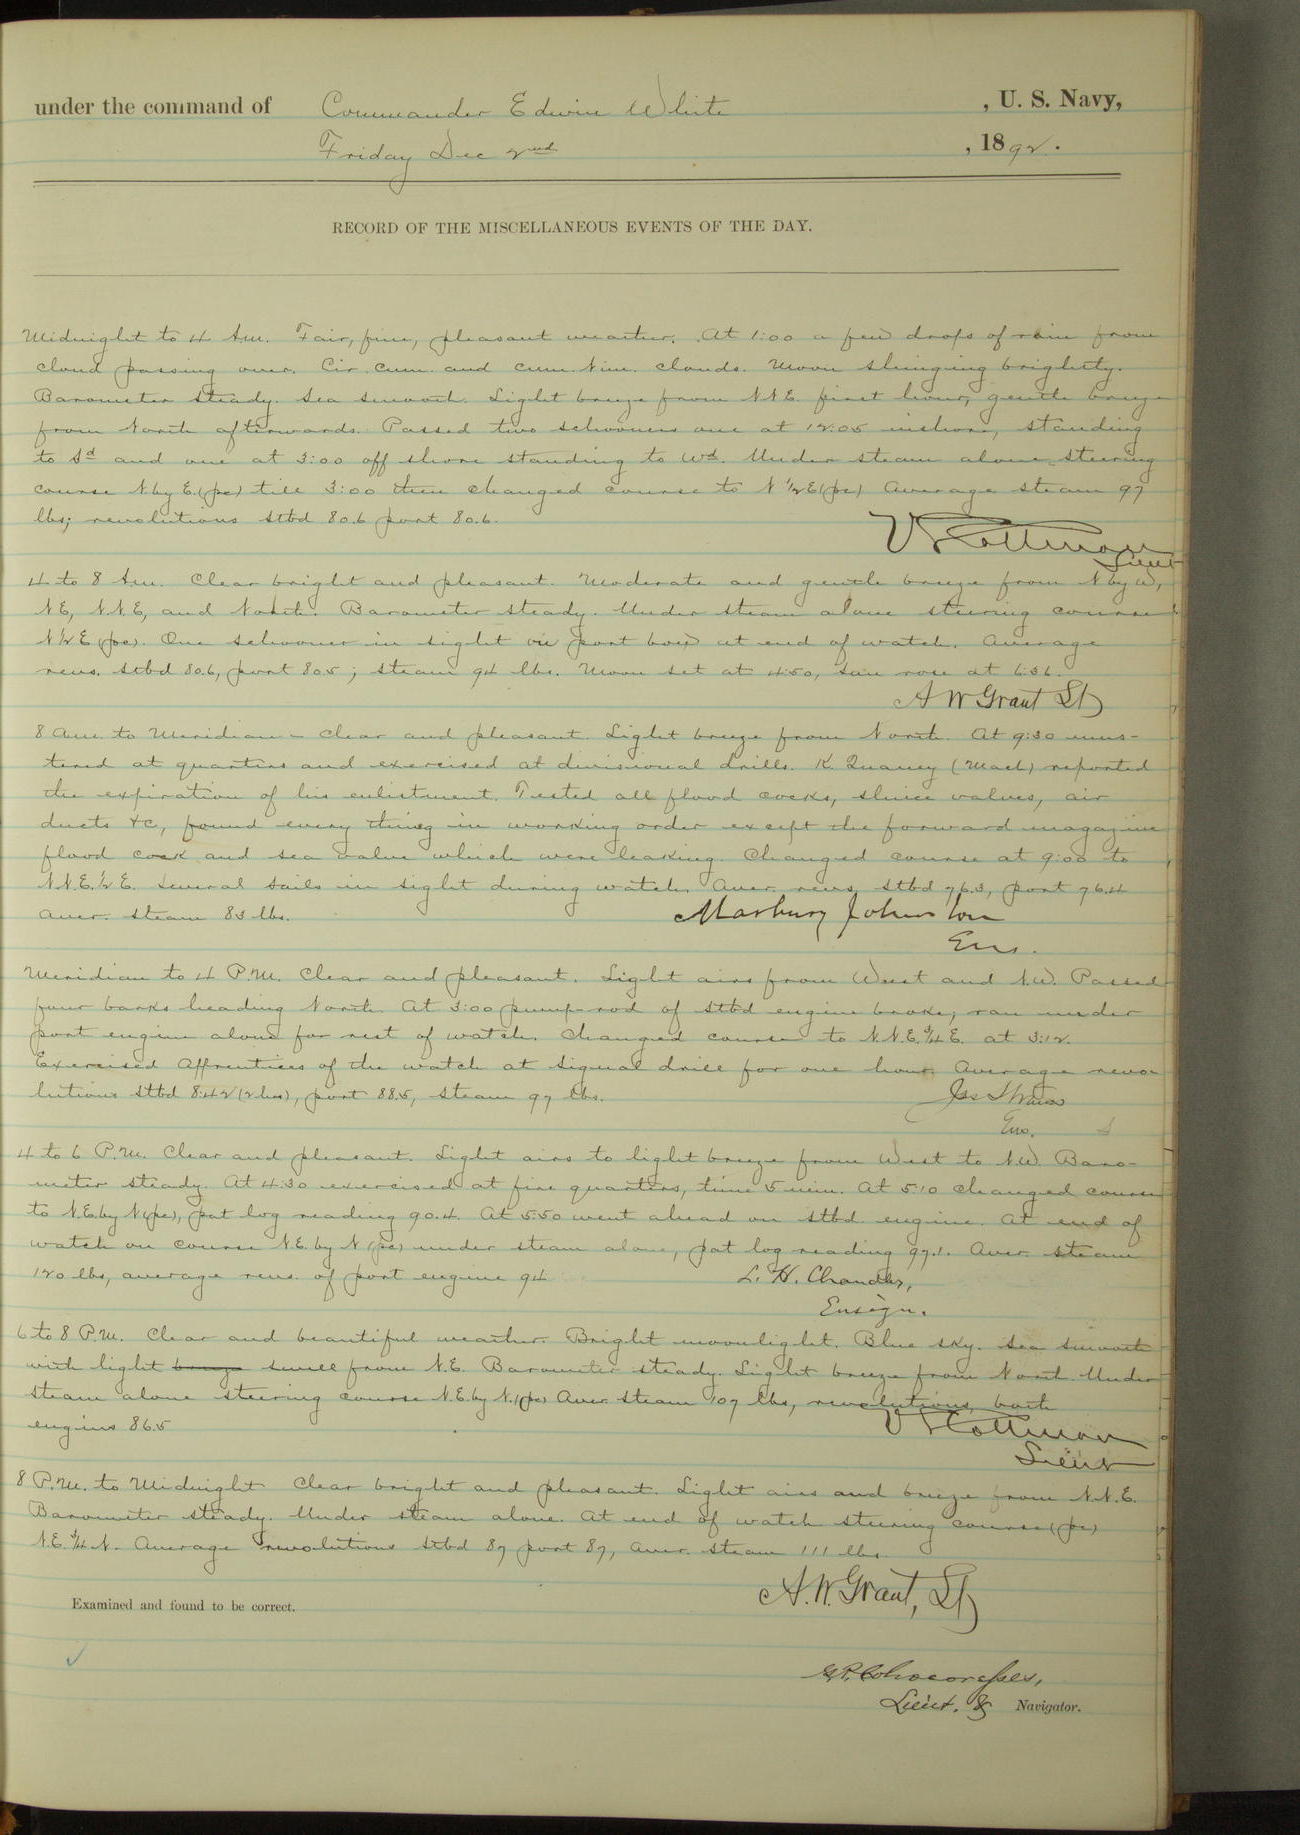 under the command of Commander Edwin White , U. S. Navy,
Friday Dec 2nd , 1892.
RECORD OF THE MISCELLANEOUS EVENTS OF THE DAY.
Midnight to 4 Am. Fair, fine, pleasant weather. At 1:00 a few drops of rain from
cloud passing over. Cir. Cum. and Cum. Nim. clouds. Moon shinging brightly.
Barometer steady. Sea smooth. Light breeze from NNE first hour, gentle breeze
from North afterwards. Passed two schooners one at 12:05 inshore, standing
to Sd and one at 3:00 off shore standing to Wd. Under steam alone steering
course N. by E. (pc) till 3:00 then changed course to N 1/2 E (pc) Average steam 97
lbs; revolutions stbd 80.6 port 80.6.
V S Cottman
Lieut
4 to 8 Am. Clear bright and pleasant. Moderate and gentle breeze from N by W,
NE, N.N.E, and North. Barometer steady. Under steam alone steering course
N 1/2 E (pc). One schooner in sight on port bow at end of watch. Average
revs. stbd 80.6, port 80.5; steam 94 lbs. Moon set at 4:50, sun rose at 6:36.
A W Grant Lt
8 Am. to Meridian - Clear and pleasant. Light breeze from North. At 9:30 mus-
tered at quarters and exercised at divisional drills. K. Quaney (Mach) reported
the expiration of his enlistment. Tested all flood cocks, sluice valves, air
ducts &c, found every thing in working order except the forward magazine
flood cock and sea valve which were leaking. Changed course at 9:00 to
N.N.E. 1/2 E. Several sails in sight during watch. Aver. revs. stbd 76.3, port 76.4
aver. steam 83 lbs.
Marbury Johnston
Ens.
Meridian to 4 P.M. Clear and pleasant. Light airs from West and N.W. Passed
four barks heading North. At 3:00 pump-rod of stbd engine broke, ran under
port engine alone for rest of watch. Changed course to N.N.E. 3/4 E. at 3:12.
Exercised Apprentices of the watch at signal drill for one hour. Average revo-
lutions stbd 84.2 (2 hrs), port 88.5, steam 97 lbs.
Ens.
4 to 6 P.M. Clear and pleasant. Light airs to light breeze from West to N.W. Baro-
meter steady. At 4:30 exercised at fire quarters, time 5 min. At 5:10 changed course
to N.E. by N (pc), pat log reading 90.4. At 5:50 went ahead on stbd engine. At end of
watch on course N.E. by N (pc) under steam alone, pat log reading 97.1. Aver. steam
120 lbs, average revs. of port engine 94
L. H. Chandler,
Ensign.
6 to 8 P.M. Clear and beautiful weather. Bright moonlight. Blue sky. Sea smooth
with light breeze swell from N.E. Barometer steady. Light breeze from North. Under
steam alone steering course N.E. by N. (pc) Aver. steam 107 lbs, revolutions, both
engines 86.5
V S Cottman
Lieut
8 P.M. to Midnight Clear bright and pleasant. Light airs and breeze from N.N.E.
Barometer steady. Under steam alone. At end of watch steering course (pc)
N.E. 3/4 N. Average revolutions stbd 87 port 87, aver. steam 111 lbs.
A. W. Grant, Lt
Examined and found to be correct.
Lieut. & Navigator.